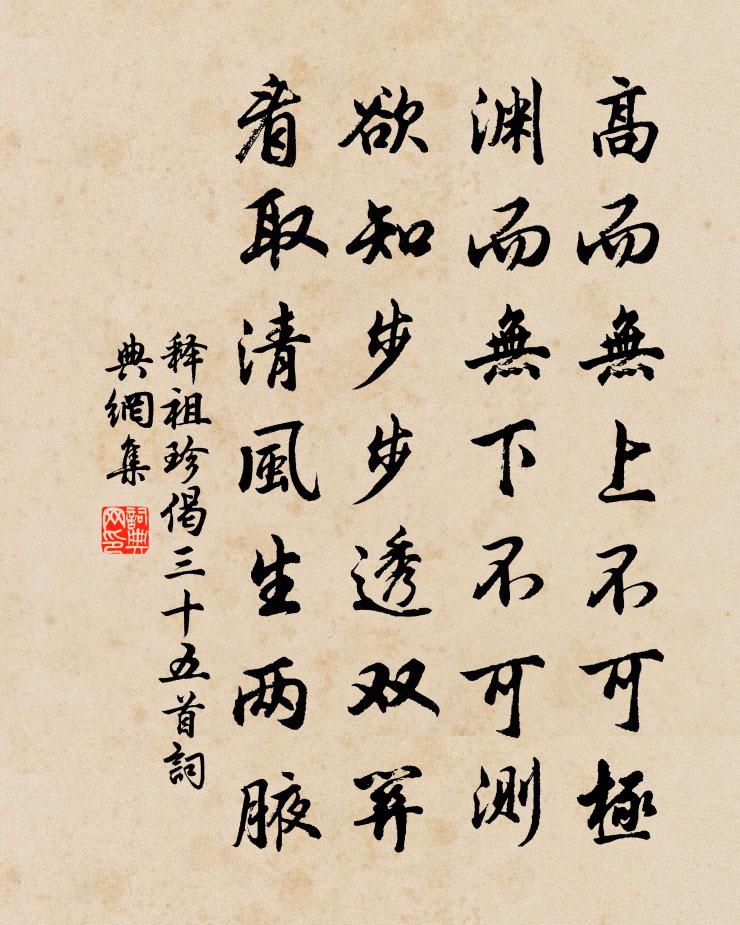 高而無上不可極
渊而無下不可測
欲知步步透双關
看取清風生两腋
释祖珍偈三十五首詞
典網集
詞典网印